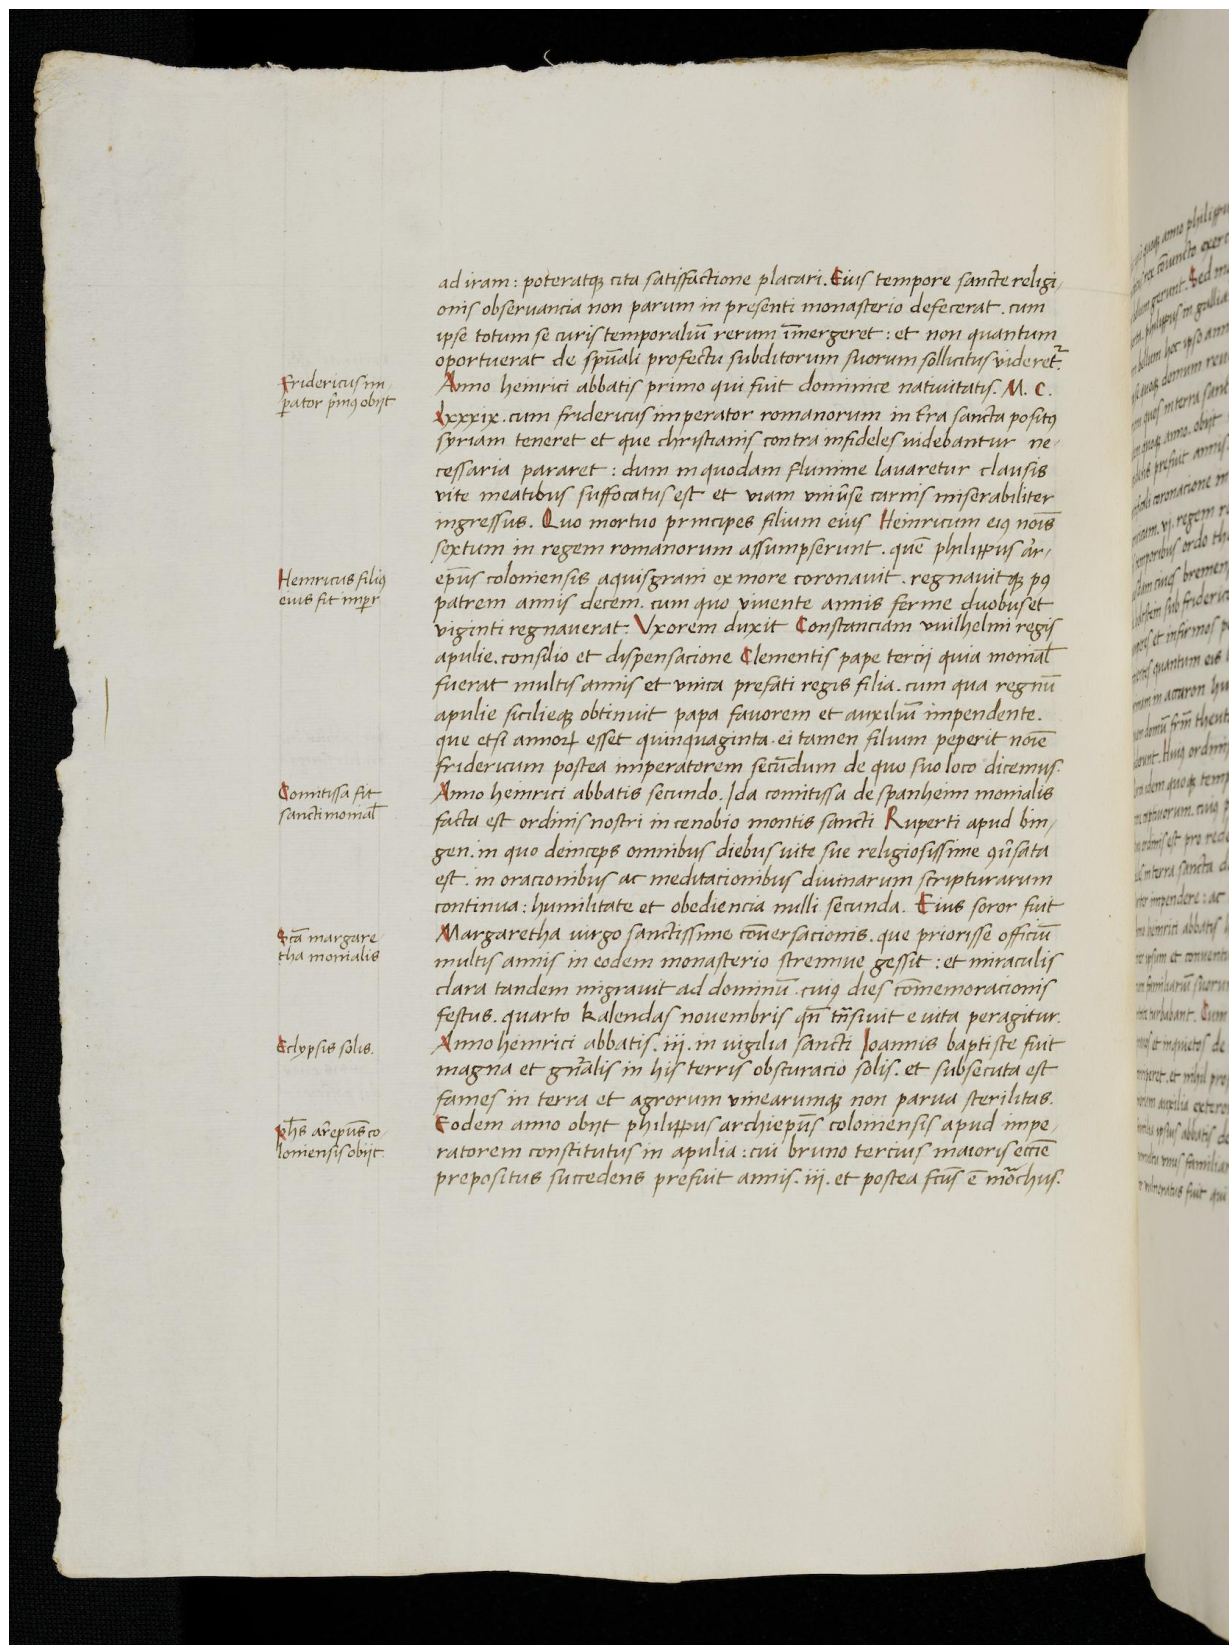 ad iram : poteratqꝫ cita satisfactione placari. Eius tempore sancte religi,
onis obseruancia non parum in presenti monasterio defecerat. cum
ipse totum se curis temporaliū rerum īmergeret : et non quantum
oportuerat de spūali profectu subditorum suorum sollicitus videret.᷑
Fridericus im,
ꝑator p̄mꝰ obijt
Anno heinrici abbatis primo qui fuit dominice natiuitatis. M. C.
lxxxix. cum fridericus imperator romanorum in tra sancta positꝰ
syriam teneret et que christianis contra infideles videbantur ne,
cessaria pararet : dum in quodam flumine lavaretur clausis
vite meatibus suffocatus est et viam vniūse carnis miserabiliter
ingressus. Quo mortuo principes filium eius Heinricum eiꝰ nōis
sextum in regem romanorum assumpserunt. quē philippus ar̄,
Heinricus filiꝰ
eius fit imꝑr
ep̄us coloniensis aquisgrani ex more coronavit. regnavitqꝫ pꝰ
patrem annis decem. cum quo vivente annis ferme duobus et
viginti regnauerat : Vxorem duxit Constanciam vuilhelmi regis
apulie. consilio et dispensacione Clementis pape tercij quia monial̄
fuerat multis annis et vnica prefati regis filia. cum qua regnū
apulie sicilieqꝫ obtinuit papa favorem et auxiliū impendente.
que etsi annoꝝ esset quinquaginta. ei tamen filium peperit noīe
fridericum postea imperatorem secūdum de quo suo loco dicemus.
Comitissa fit
sanctimonial̄
Anno heinrici abbatis secundo. Ida comitissa de spanheim monialis
facta est ordinis nostri in cenobio montis sancti Ruperti apud bin,
gen. in quo deinceps omnibus diebus vite sue religiosissime ꝯūsata
est. in oracionibus ac meditacionibus divinarum scripturarum
continua : humilitate et obediencia nulli secunda. Eius soror fuit
Scā margare,
tha monialis
Margaretha virgo sanctissime cōuersacionis. que priorisse officiū
multis annis in eodem monasterio strennue gessit : et miraculis
clara tandem migravit ad dominū. cuiꝰ dies cōmemoracionis
festus. quarto kalendas novembris qn̄ tn̄sivit e vita peragitur.
Eclypsis solis.
Anno heinrici abbatis. iii. in vigilia sancti Joannis baptiste fuit
magna et gn̄alis in his terris obscuracio solis. et subsecuta est
fames in terra et agrorum vinearumqꝫ non parua sterilitas.
ph̄s ar̄epūs co,
loniensis obijt.
Eodem anno obijt philippus archiep̄us coloniensis apud impe,
ratorem constitutus in apulia : cui bruno tercius maioris eccīe
prepositus succedens prefuit annis. iii. et postea fcūs ē moᷓchus.